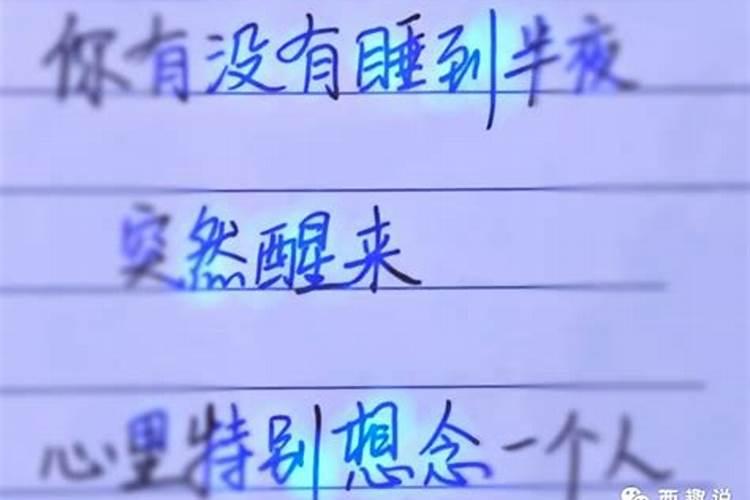 你有没有睡到半夜
突然醒来
心里特别想念一个人
西趣说